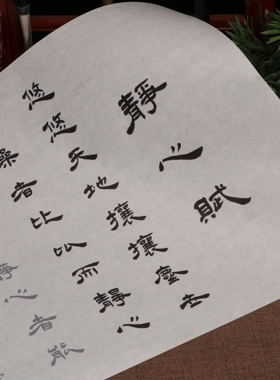 靜心賦
悠悠天地攘攘塵世
者比比而靜心
心者能